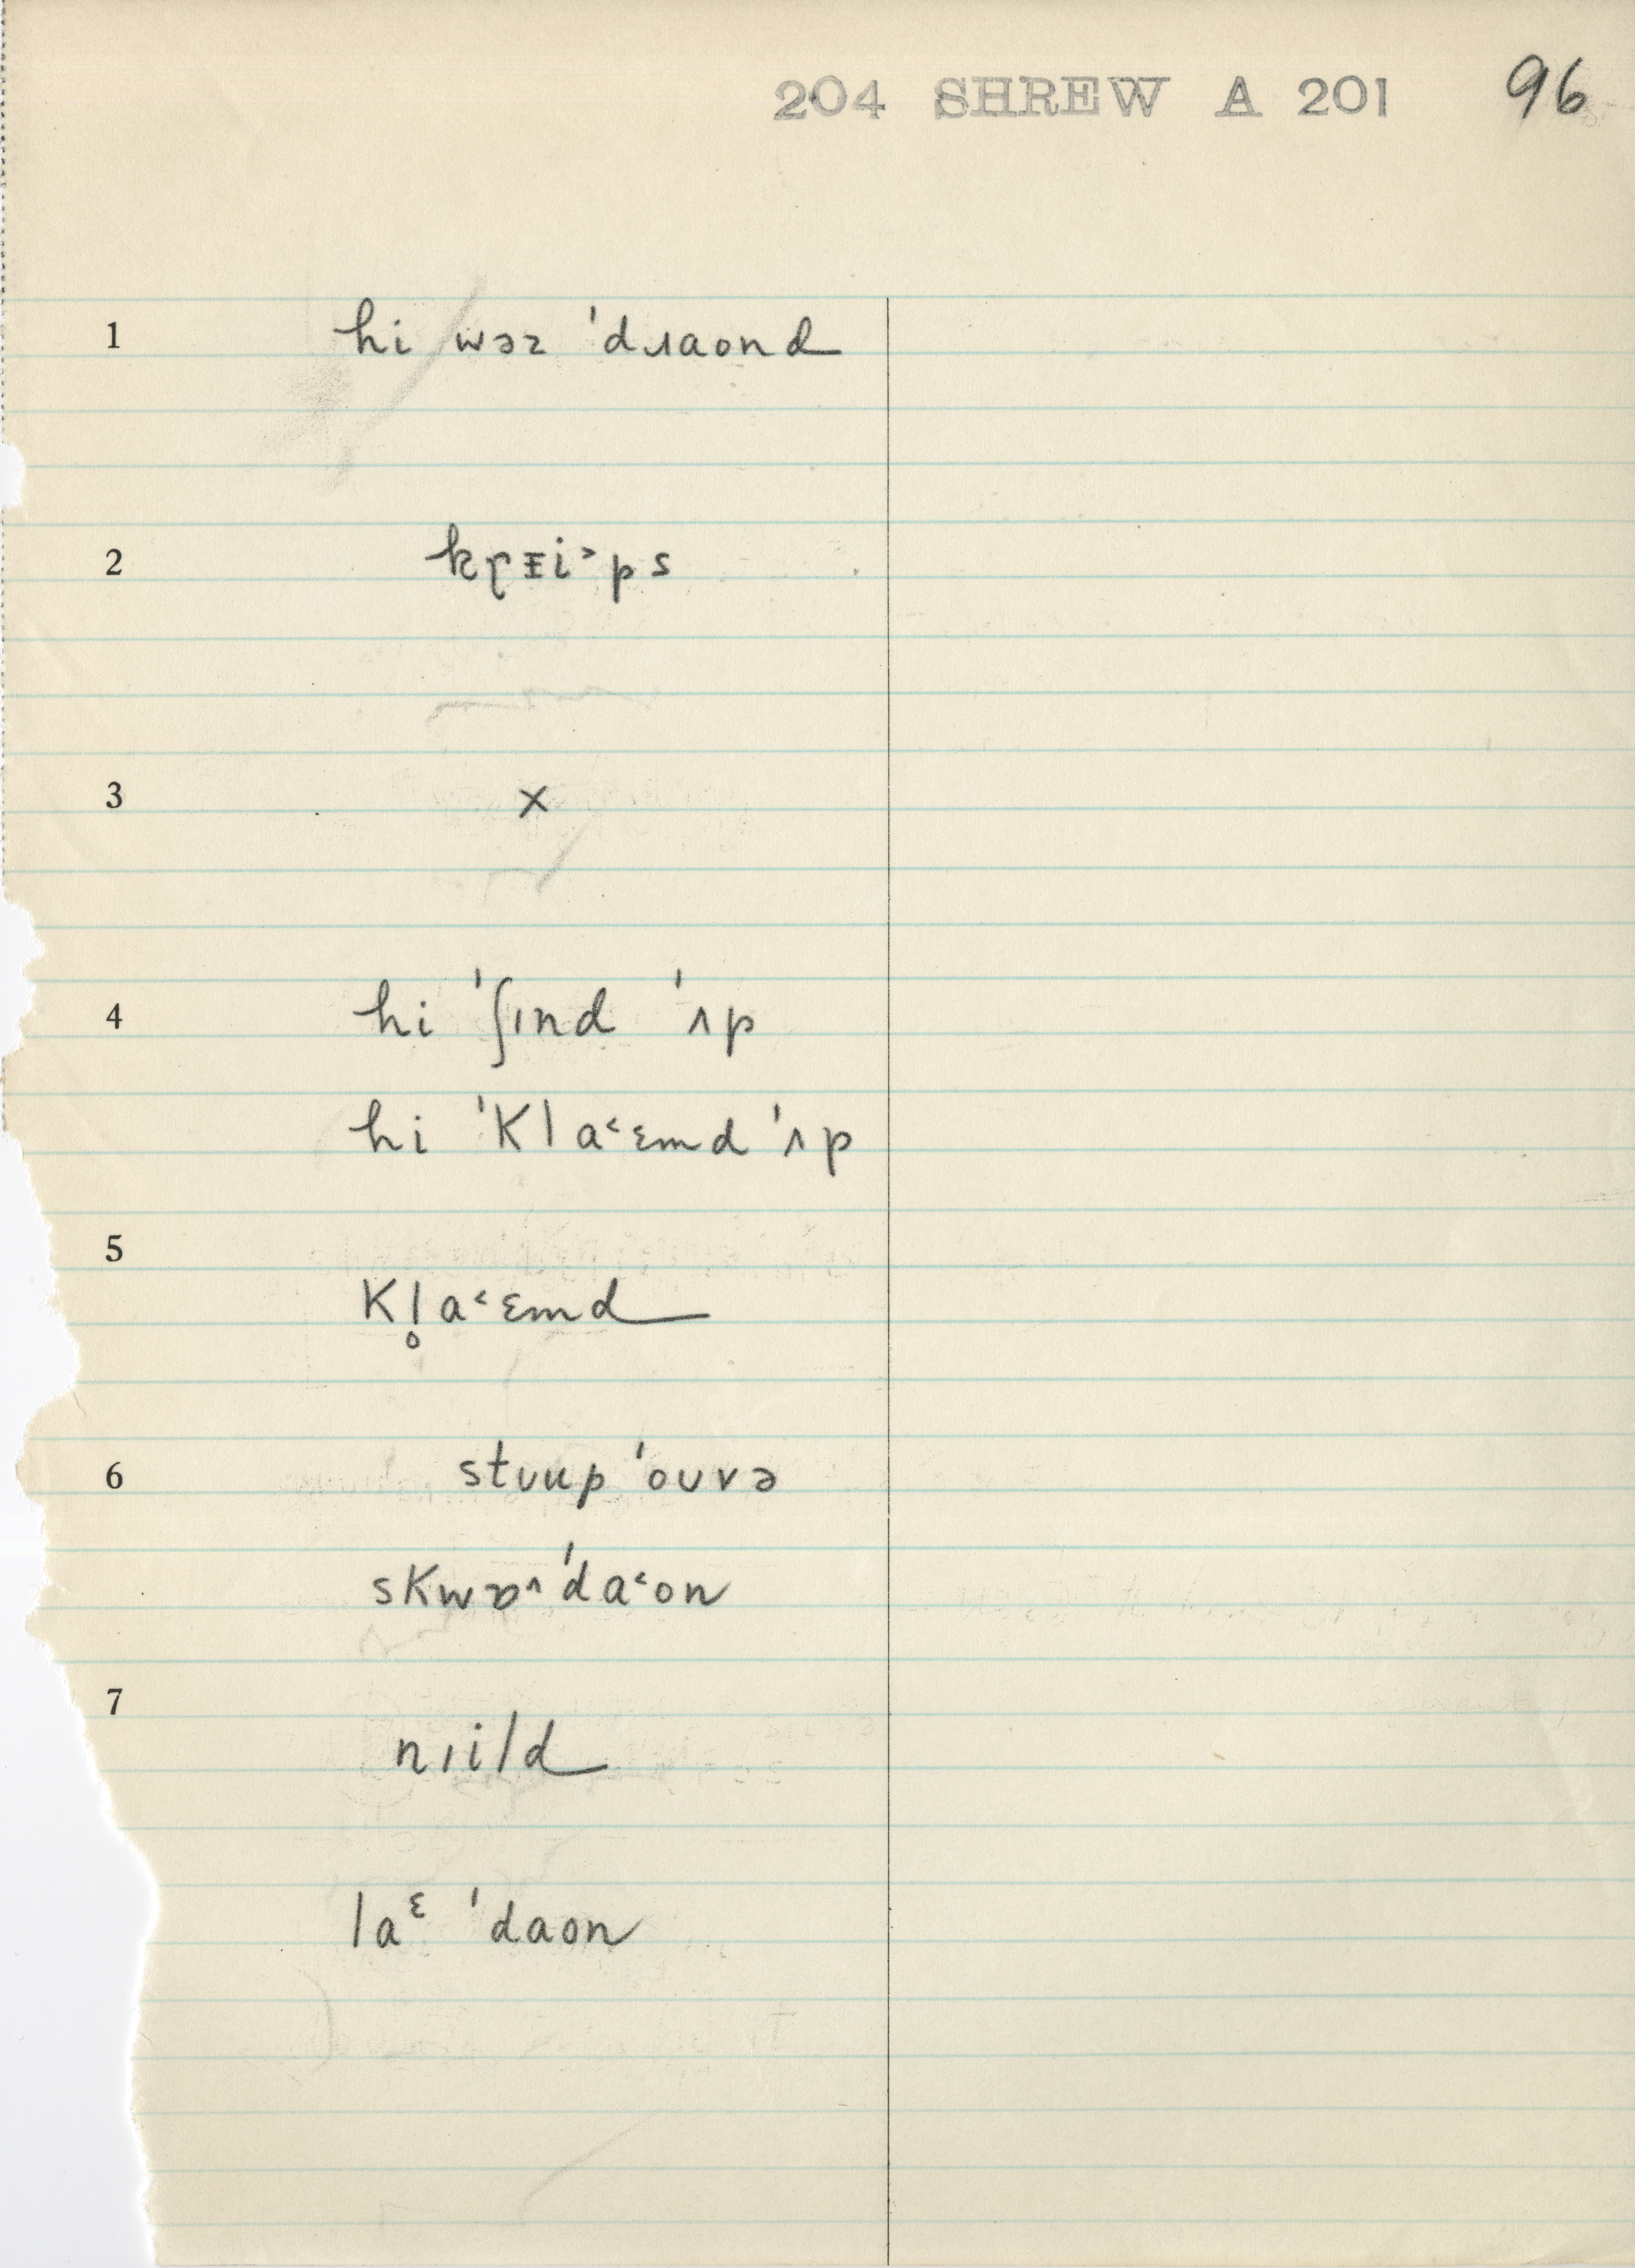 204 SHREW A 201 96
1 hi wəz ˈdɹaond
2 kɽᵻi˃ps
3 ×
4 hi ˈʃɪnd ˈʌp
hi ˈkla˂ɛmd ˈʌp
5 kl̥a˂ɛmd
6 stʊup ˈoʊvə
skwɒ^ ˈda˂on
7 nɪild
laᵋ ˈdaon